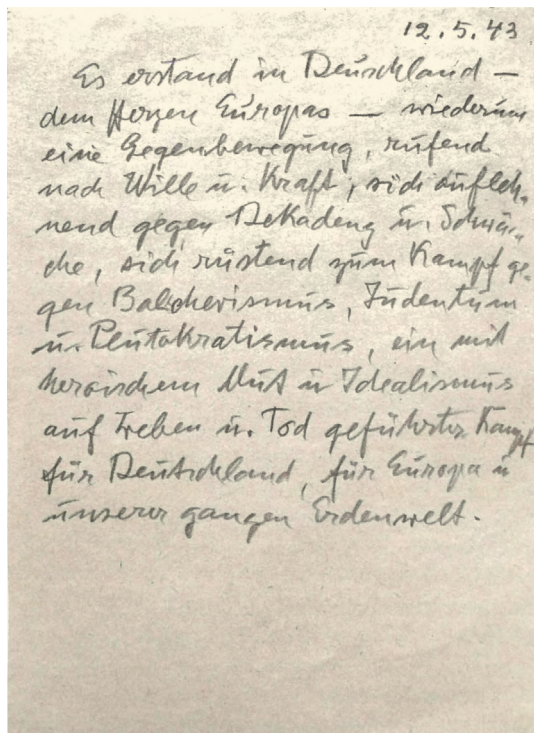 12.5.43
Es erstand in Deutschland —
dem Herzen Europas — wiederum
eine Gegenbewegung, rufend
nach Wille u. Kraft, sich aufleh-
nend gegen Dekadenz u. Schwä-
che, sich rüstend zum Kampf ge-
gen Bolschewismus, Judentum
u. Plutokratismus, ein mit
heroischem Mut u Idealismus
auf Leben u. Tod geführter Kampf
für Deutschland, für Europa u
unserer ganzen Erdenwelt.